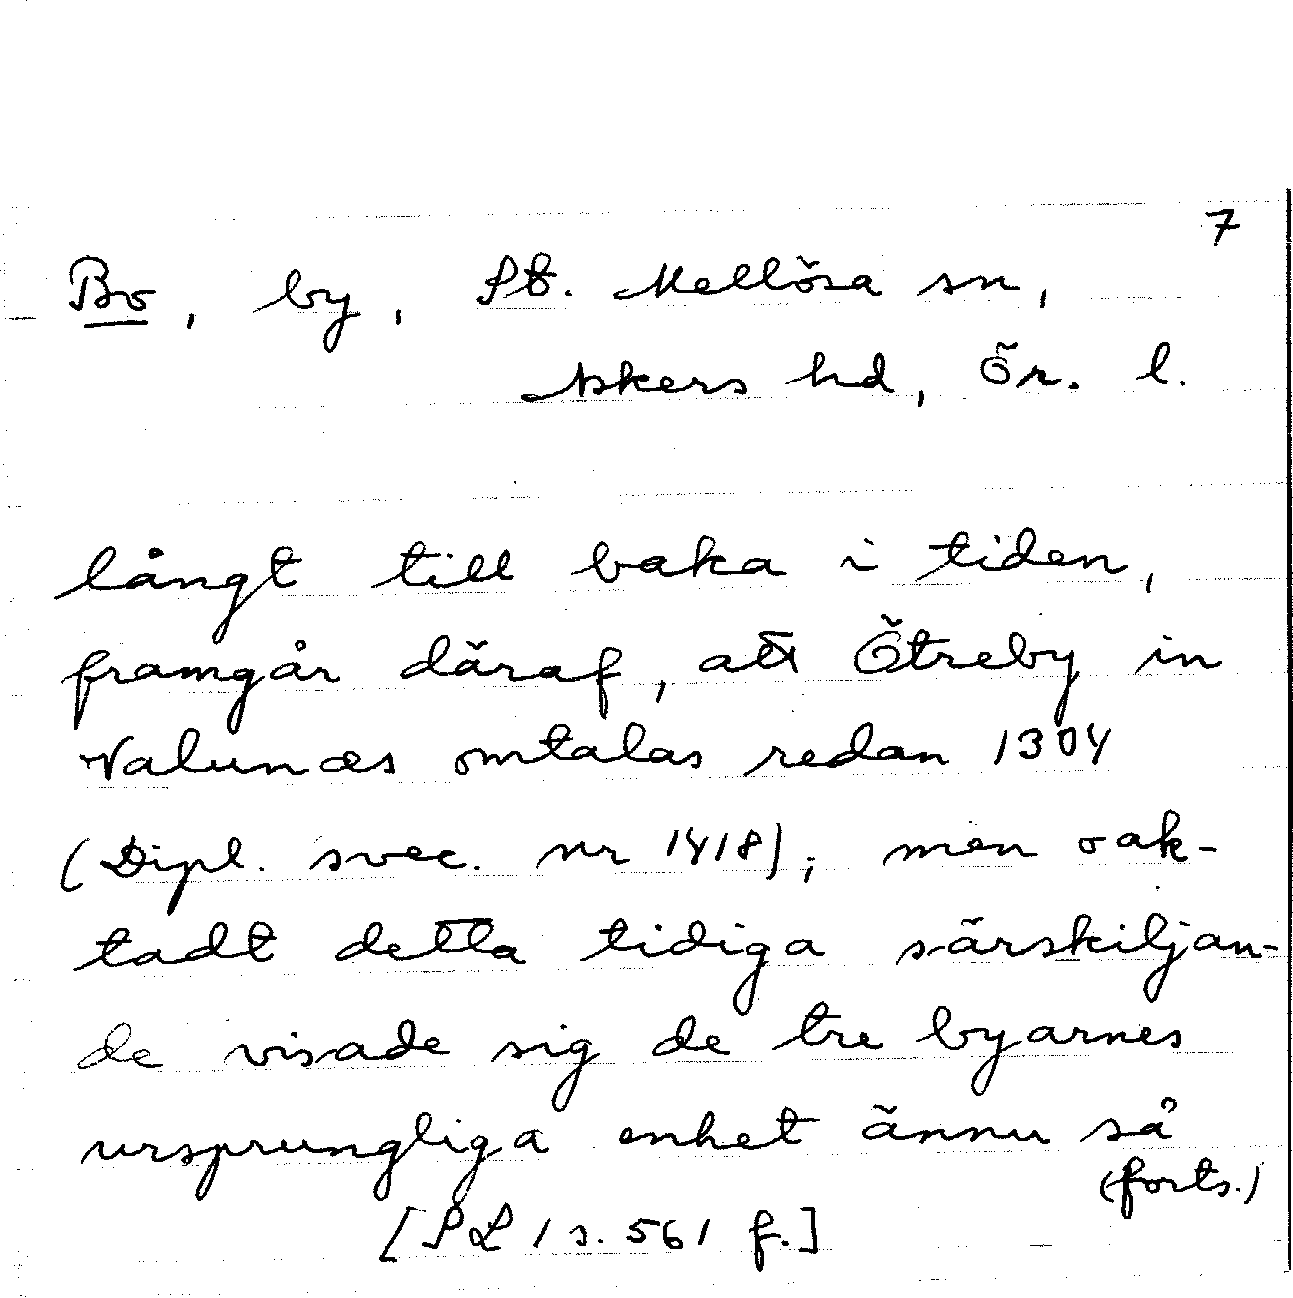 7
Bo, by, St. Mellösa sn,
Askers hd, Ör. l.
långt till baka i tiden,
framgår däraf, att Ötreby in
Valunæs omtalas redan 1304
(Dipl. svec. nr 1418); men oak-
tadt detta tidiga särskiljan-
de visade sig de tre byarnes
ursprungliga enhet ännu så
(forts.)
[SL 1 s. 561 f.]